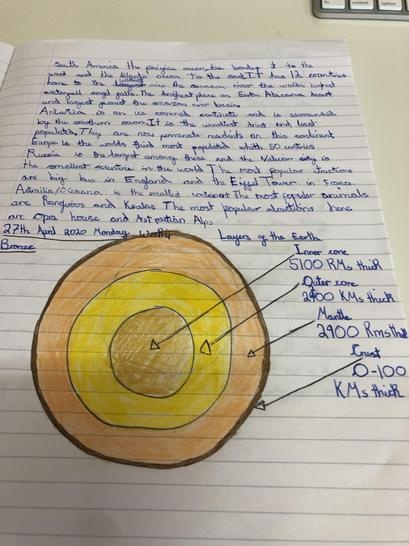 South America the pacific ocean the border it to the
west and the Atlantic ocean to the east. It has 12 countries
home to the largest the amazon river the worlds highest
waterfall angel falls. The driest place on Earth Atacama desert
and largest forest the amazon river basin
Antartica is an ice covered continate and is surrounded
by the southern ocean. It is the windiest driest and least
populates. They are now permante residents on this continent
Europe is the worlds third most populated whith 50 entries
Russia is the largest among these and the Vatican city is
the smallest countrie in the world The most popular atractions
are big ben in England and the Eiffel Tower in France.
/Oceana is the smallest continent The most popular animals
are Kangurus and Koalas The most popular atractions here
are Opra house and Alps
27th April 2020 Monday Layers of the Earth
Bronze
Inner core
5100 KMs thick
Outer core
2400 KMs thick
Mantle
2900 Kms thick
Crust
0-100
KMs thick
control
option